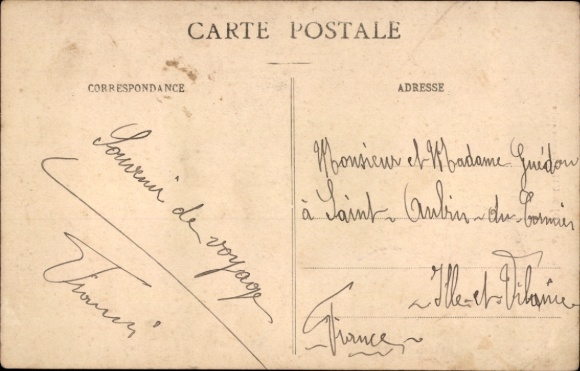 CARTE POSTALE
CORRESPONDANCE
ADRESSE
Souvenir de voyage
Monsieur et Madame Guédon
à Saint-Aubin-du-Cormier
Ille-et-Vilaine
France